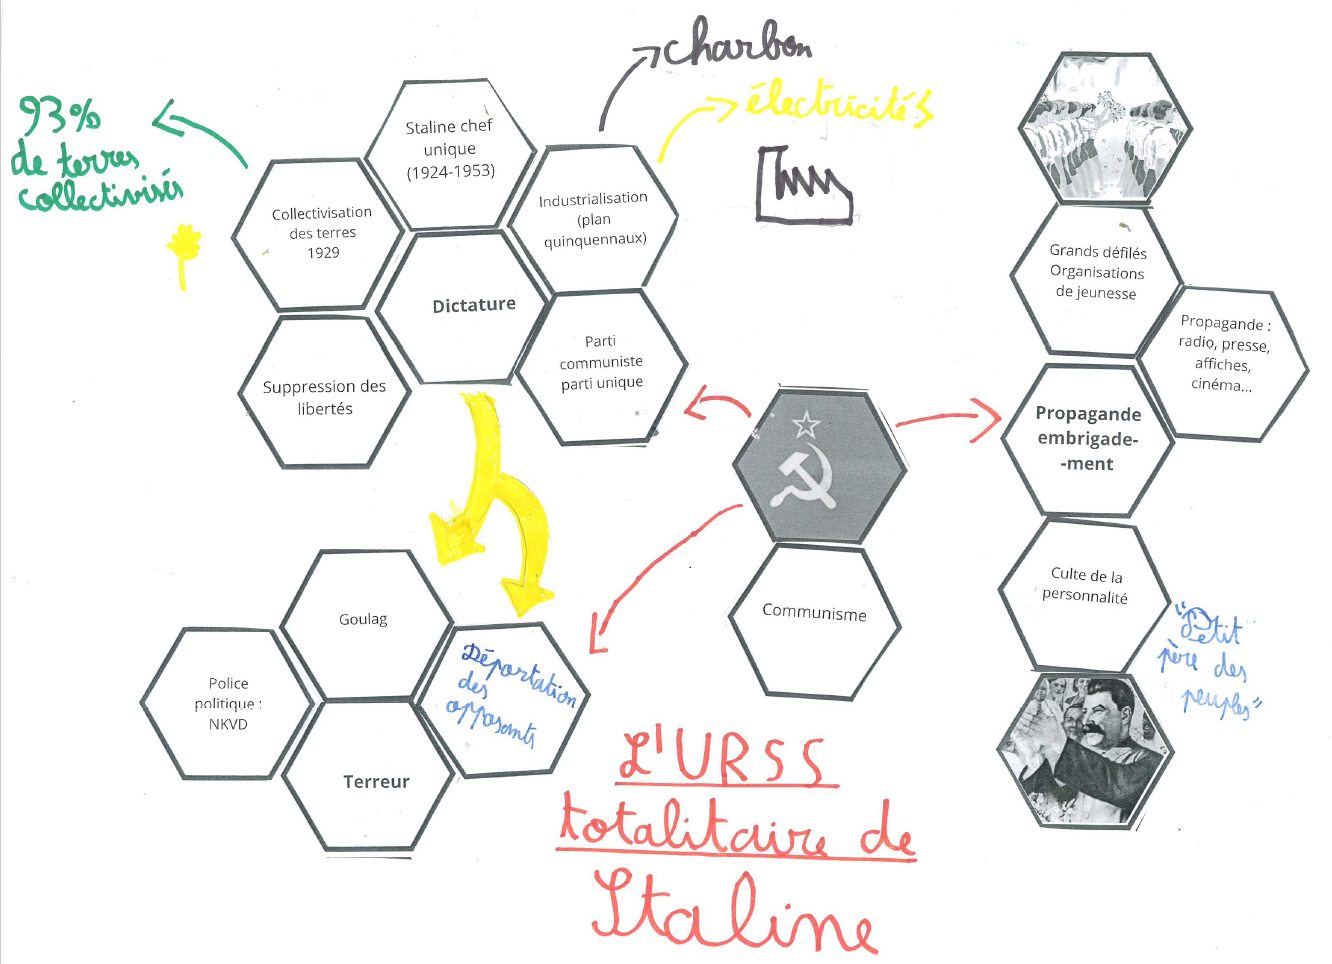 charbon
électricités
93%
de terres
collectivisés
Staline chef
unique
(1924-1953)
Collectivisation
des terres
1929
Industrialisation
(plan
quinquennaux)
Dictature
Suppression des
libertés
Parti
communiste
parti unique
Grands défilés
Organisations
de jeunesse
Propagande :
radio, presse,
affiches,
cinéma...
Propagande
embrigade-
-ment
Culte de la
personnalité
"Petit
père des
peuples"
Communisme
Goulag
Police
politique :
NKVD
Déportation
des
opposants
Terreur
L'URSS
totalitaire de
Staline